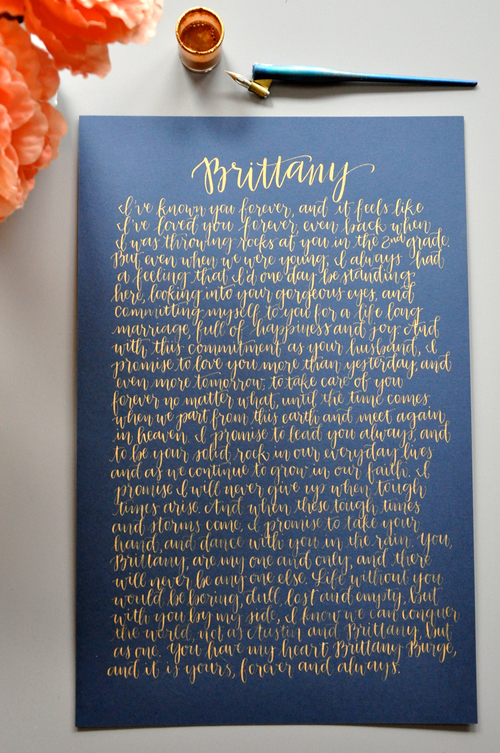 Brittany
I've known you forever, and it feels like
I've loved you forever, even back when
I was throwing rocks at you in the 2nd grade.
But even when we were young, I always had
a feeling that I'd one day be standing
here, looking into your gorgeous eyes, and
committing myself to you for a life long
marriage, full of happiness and joy. And
with this commitment as your husband, I
promise to love you more than yesterday, and
even more tomorrow, to take care of you
forever no matter what, until the time comes
when we part from this earth and meet again
in heaven. I promise to lead you always, and
to be your solid rock in our everyday lives
and as we continue to grow in our faith. I
promise I will never give up when tough
times arise. And when these tough times
and storms come, I promise to take your
hand, and dance with you in the rain. You,
Brittany, are my one and only, and there
will never be any one else. Life without you
would be boring, dull, lost and empty. But
with you by my side, I know we can conquer
the world, not as Austin and Brittany, but
as one. You have my heart Brittany Burge,
and it is yours, forever and always.